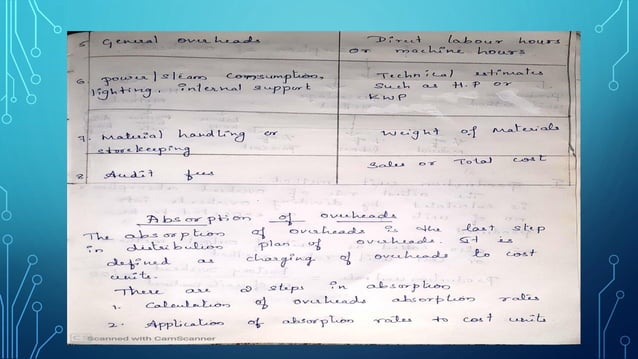 5 General overheads
Direct labour hours
or machine hours
6. power/steam comsumption,
lighting, internal support
Technical estimates
such as H.P or
KWP
7. Material handling or
storekeeping
Weight of Materials
8 Audit fees
Sales or Total cost
Absorption of overheads
The absorption of overheads is the last step
in distribution plan of overheads. It is
defined as charging of overheads to cost
units.
There are 2 steps in absorption
1. Calculation of overheads absorption rates
2. Application of absorption rates to cost units
Scanned with CamScanner